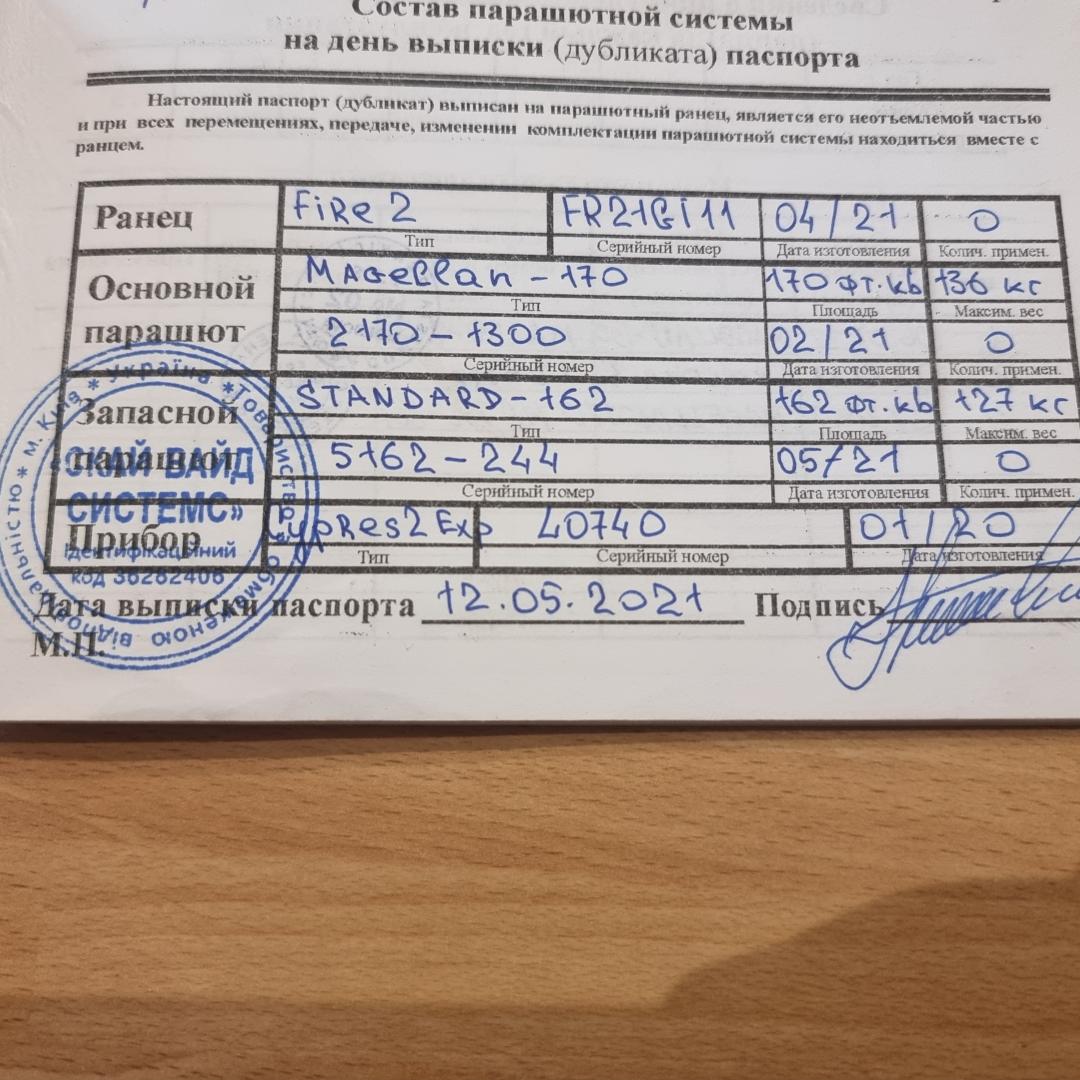 Состав парашютной системы
на день выписки (дубликата) паспорта
Настоящий паспорт (дубликат) выписан на парашютный ранец, является его неотъемлемой частью
и при всех перемещениях, передаче, изменении комплектации парашютной системы находиться вместе с
ранцем.
Ранец FiRe 2 FR21Gi11 04/21 0
Тип Серийный номер Дата изготовления Колич. примен.
Основной парашют Magellan-170 170 фт.кв 136 кг
Тип Площадь Максим. вес
2170-1300 02/21 0
Серийный номер Дата изготовления Колич. примен.
Запасной парашют STANDARD-162 162 фт.кв 127 кг
Тип Площадь Максим. вес
5162-244 05/21 0
Серийный номер Дата изготовления Колич. примен.
Прибор CypRes2 Exp 40740 01/20
Тип Серийный номер Дата изготовления
Дата выписки паспорта 12.05.2021 Подпись
М.П.
* Україна * Товариство з обмеженою відповідальністю * м. Київ
«СКАЙ ВАЙД
СИСТЕМС»
Ідентифікаційний
код 36282406